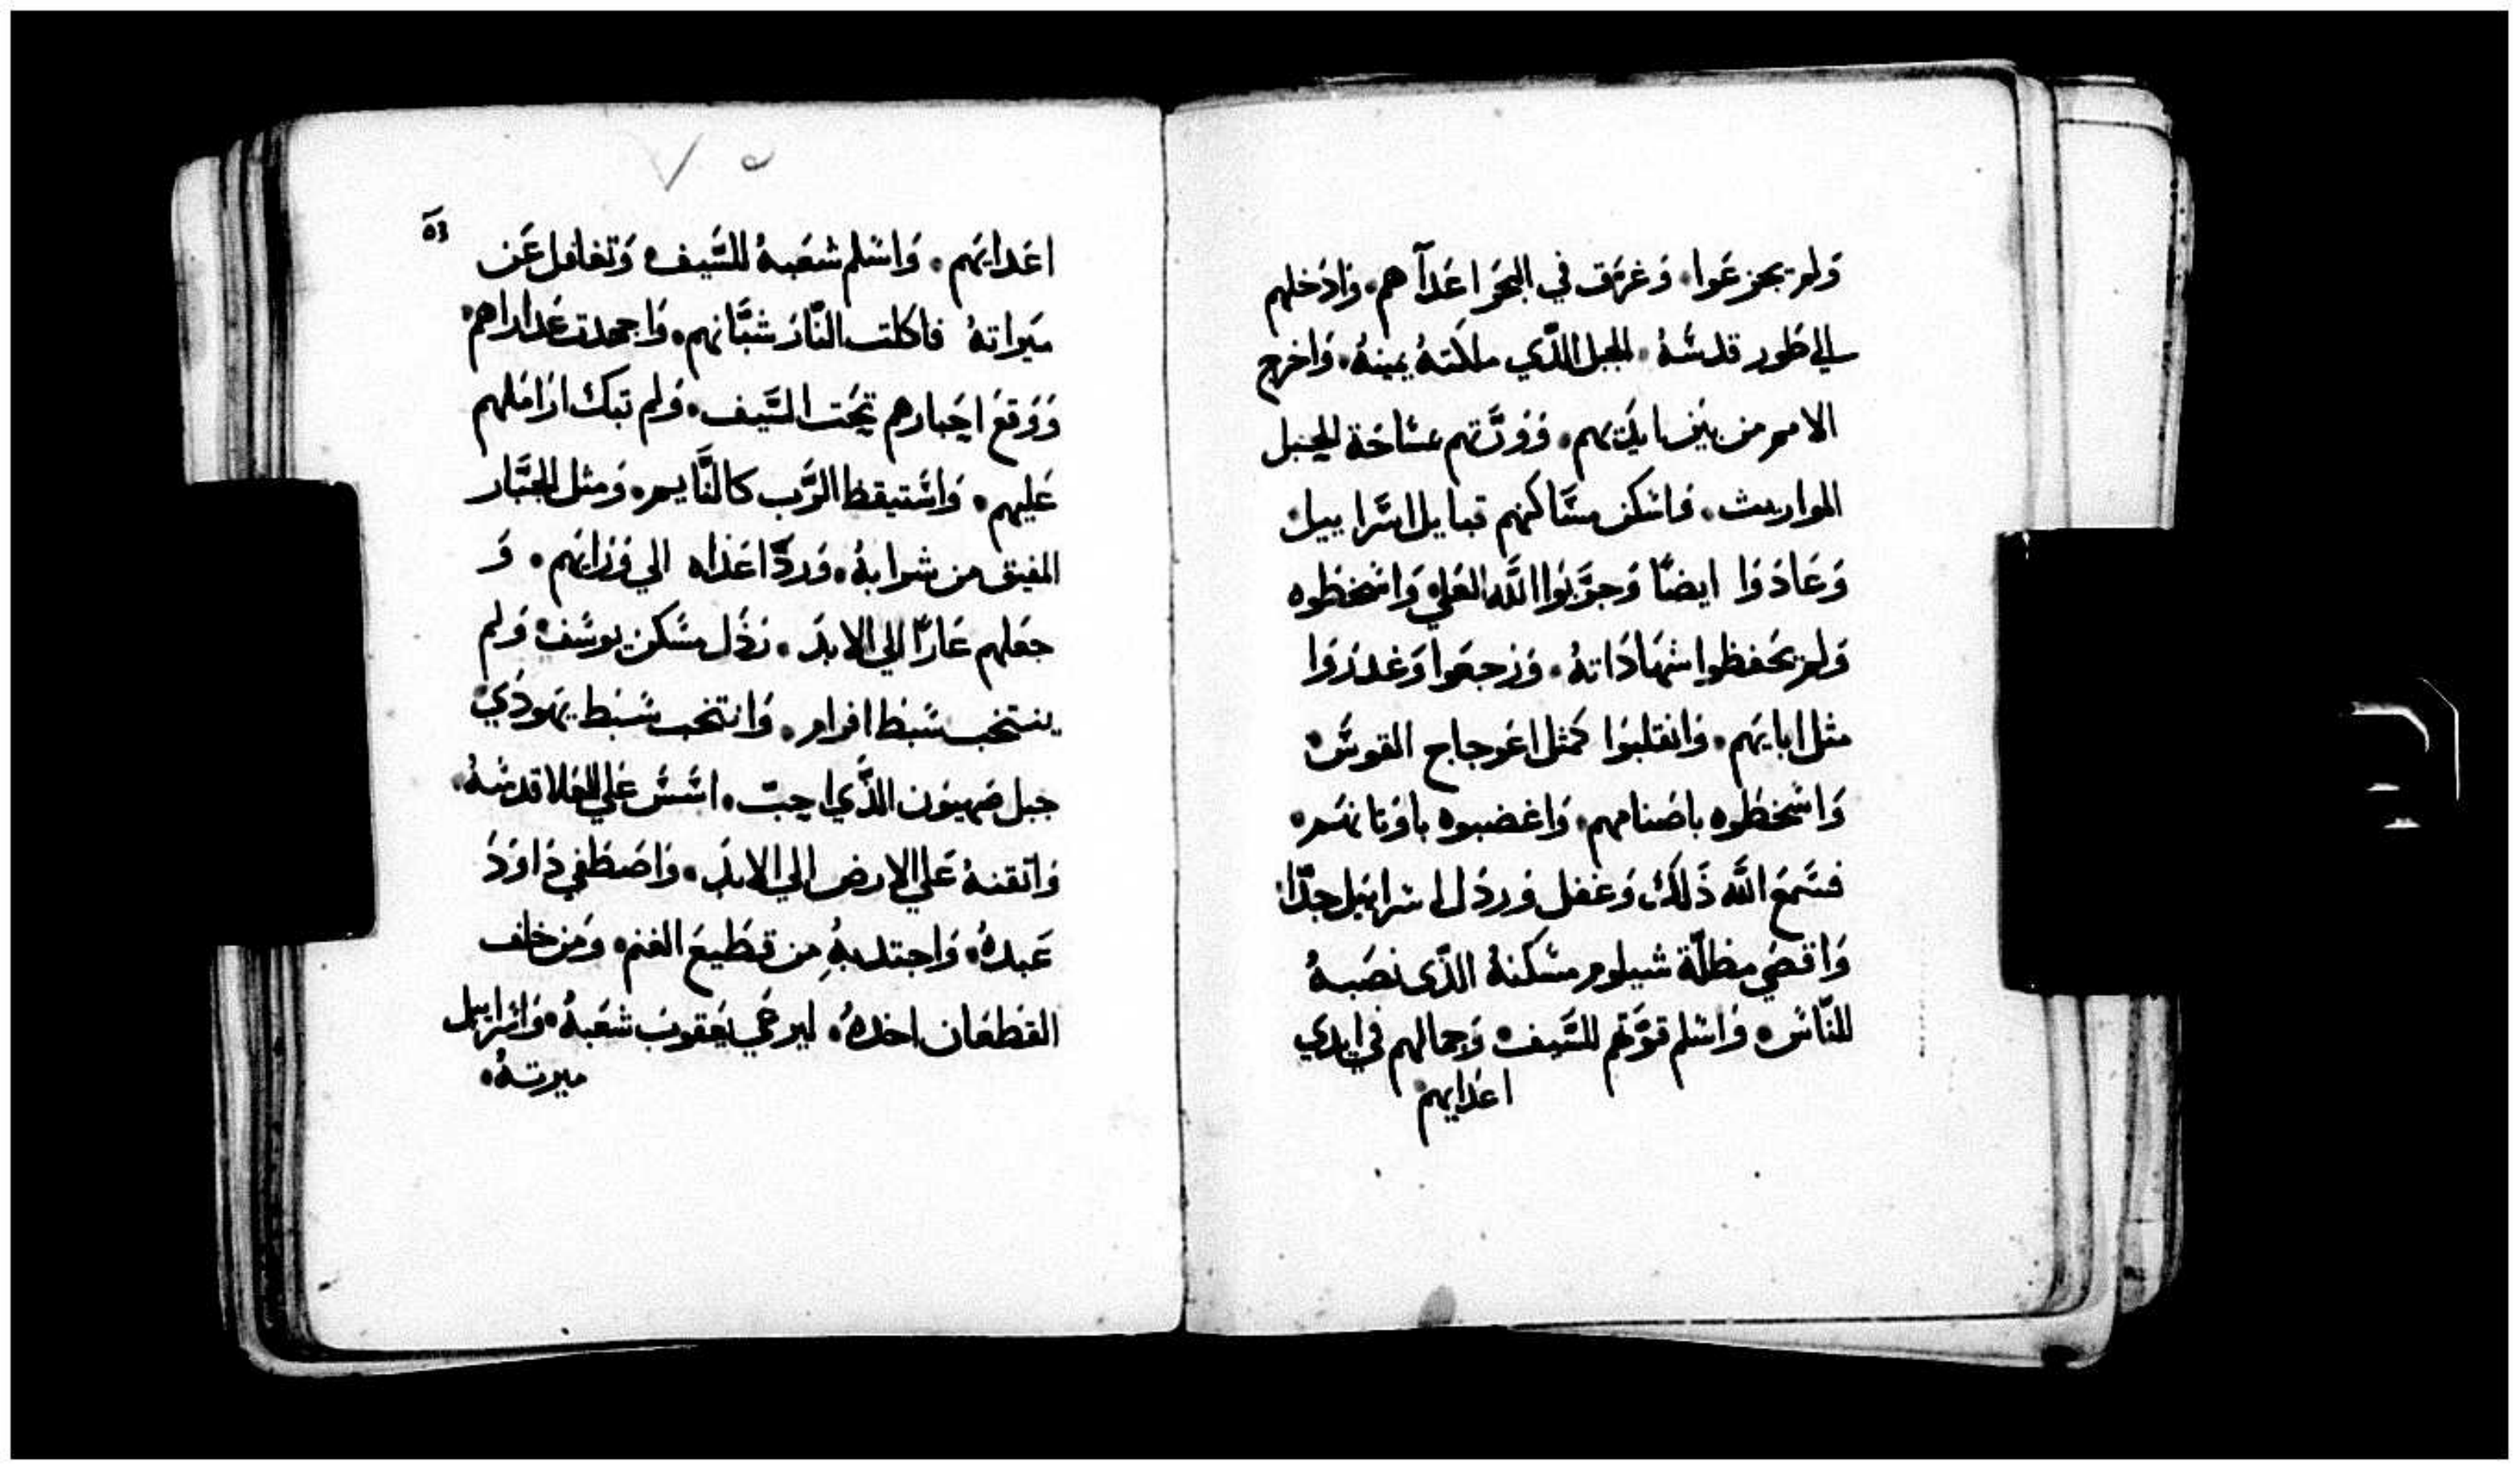 ولم يجزعوا. وَغرّق في البحَر اعَدآهم. وَادَخلهم
الي طَور قدسُهُ. الجبل الذّي ملكتهُ يمينهُ. وَاخرج
الامم من بَين ايَديهم. وَوَرّثهم مسَاحَة الجبل
المواريث. فاسَكن مسَاكنهم قبايل اسَراييل
وَعَادَوَا ايضًا وَجرَّبَوا اللَّه العَلي وَاسَخطَوه
وَلم يحَفظوا شهَادَاتهُ. وَرَجعَوا وَغدرَوَا
مثل ابايَهم. وَانقلبَوا كمَثل اعَوجاج القوسَ
وَاسَخطَوه باصَنامهم. وَاغضبوه باوَثانهَم.
فسَمعَ اللَّه ذَلكَ وَغفل وَرذل اسَراييَل جدًّا
وَاقصَي مظلّة شيلوم مسَكنهُ الذّى نصَبهُ
للنّاسَ. وَاسَلم قوَّتهم للسَّيف. وَجمالهم في ايدي
اعَدايهم
٥٦
اعَدايَهم. وَاسَلم شعَبهُ للسَّيف. وَتغافل عَن
ميَراثهُ فاكلت النَّارَ شبَّانهم.
وَوَقعَ احَبارهم تحَت السَّيف. وَلم تبَك ارَامَلهم
عَليهم. وَاسَتيقظ الرَّب كالنَّايم. وَمثل الجبَّار
المفيق من شرابهُ. وَردّ اعَداه الي وَرَايَهم. وَ
جعَلهم عَارًا الي الابدَ. رَذَل مسَكن يوسَف وَلم
ينتخب سَبط افرام. وَانتخب سَبط يهَوذَي
جبل صَهيَون الذَّي احبّ. اسَّسَ عَلي العَلا قدسَهُ.
وَاتقنهُ عَلي الارض الي الابدَ. وَاصَطفي دَاوَدَ
عَبدهُ. وَاجتدبهُ من قطَيعَ الغنم. وَمن خلف
القطعَان اخدهُ. ليرعَي يعَقوبَ شعَبهُ. وَاسَراييل
ميرتهُ.